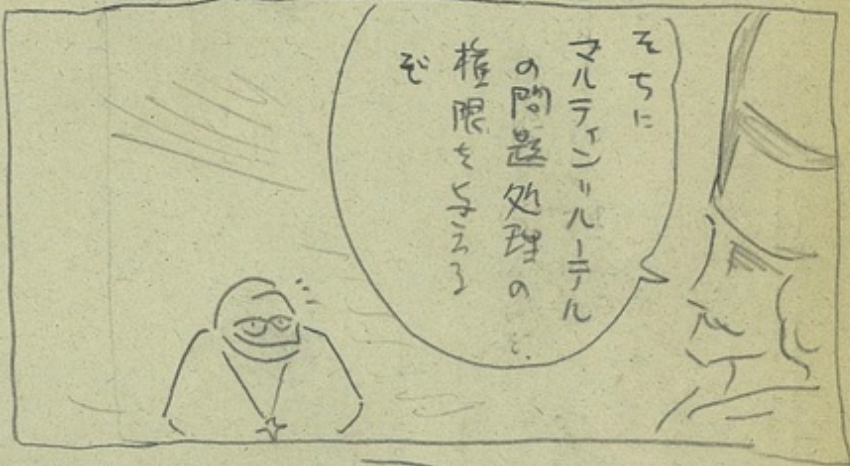 そちに
マルティン=ルーテル
の問題処理の
権限を与える
ぞ